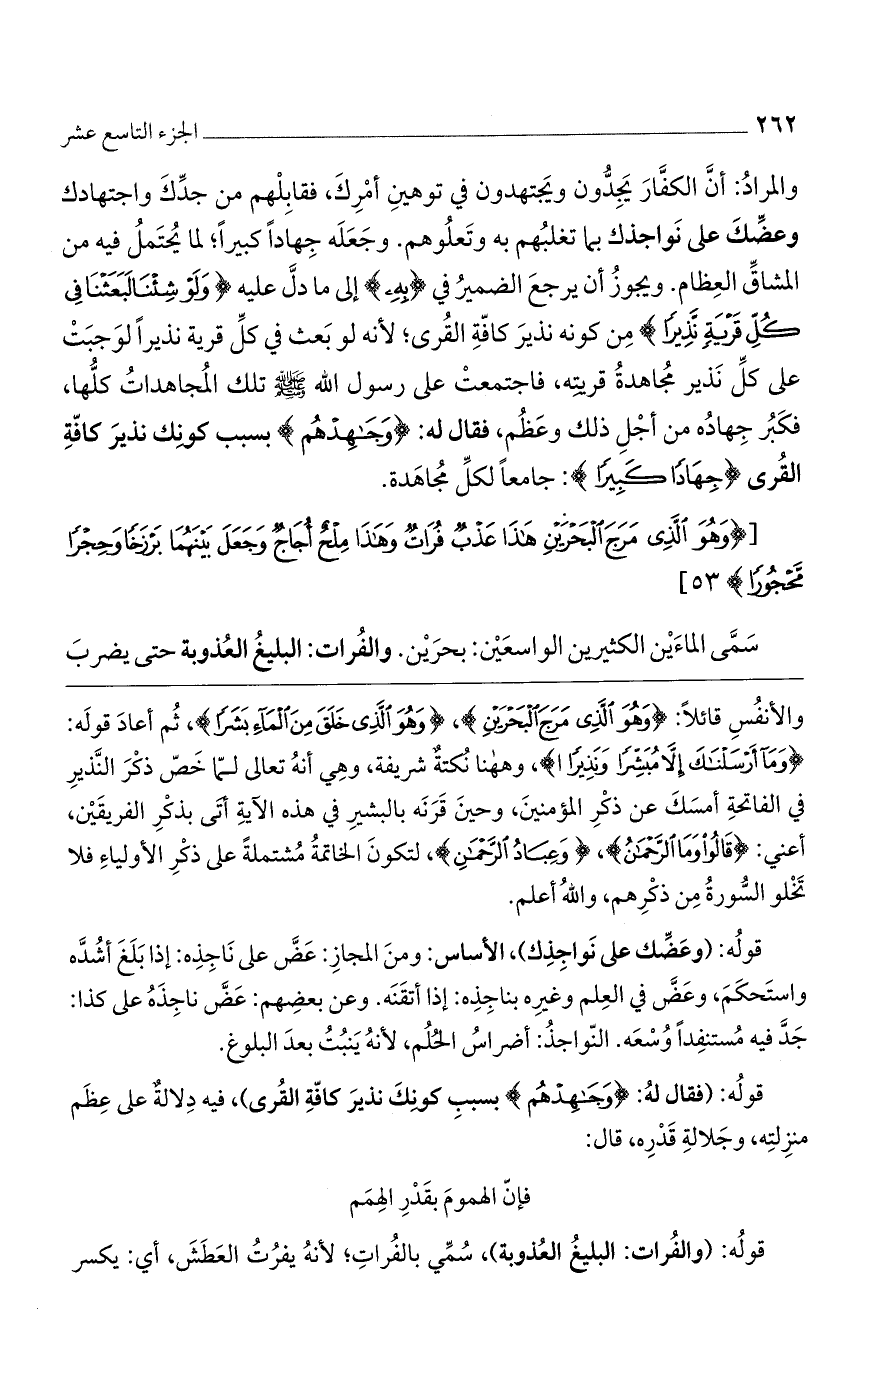 ٢٦٢ ــــــــــــــــــــ الجزء التاسع عشر
والمرادُ: أنَّ الكفَّارَ يَجِدُّون ويَجتهدون في توهينِ أمْرِكَ، فقابِلْهم من جدِّكَ واجتهادك
وعضِّكَ على نَواجذك بما تغلبُهم به وتَعلُوهم. وجَعَلَه جِهاداً كبيراً؛ لما يُحتَملُ فيه من
المشاقِّ العِظام. ويجوزُ أن يرجعَ الضميرُ في ﴿بِهِۦ﴾ إلى ما دلَّ عليه ﴿وَلَوْ شِئْنَا لَبَعَثْنَا فِى
كُلِّ قَرْيَةٍ نَّذِيرًا﴾ مِن كونه نذيرَ كافّةِ القُرى؛ لأنه لو بَعث في كلِّ قرية نذيراً لوَجبَتْ
على كلِّ نَذير مُجاهدةُ قريتِه، فاجتمعتْ على رسول الله ﷺ تلك المُجاهداتُ كلُّها،
فكَبُر جِهادُه من أجْلِ ذلك وعَظُم، فقال له: ﴿وَجَٰهِدْهُم﴾ بسبب كونِك نذيرَ كافّةِ
القُرى ﴿جِهَادًا كَبِيرًا﴾: جامعاً لكلِّ مُجاهَدة.
[﴿وَهُوَ ٱلَّذِى مَرَجَ ٱلْبَحْرَيْنِ هَٰذَا عَذْبٌ فُرَاتٌ وَهَٰذَا مِلْحٌ أُجَاجٌ وَجَعَلَ بَيْنَهُمَا بَرْزَخًا وَحِجْرًا
مَّحْجُورًا﴾ ٥٣]
سَمَّى الماءَيْن الكثيرين الواسعَيْن: بحرَيْن. والفُرات: البليغُ العُذوبة حتى يضربَ
والأنفُسِ قائلاً: ﴿وَهُوَ ٱلَّذِى مَرَجَ ٱلْبَحْرَيْنِ﴾، ﴿وَهُوَ ٱلَّذِى خَلَقَ مِنَ ٱلْمَآءِ بَشَرًا﴾، ثُم أعادَ قولَه:
﴿وَمَآ أَرْسَلْنَٰكَ إِلَّا مُبَشِّرًا وَنَذِيرًا﴾، وههنا نُكتةٌ شريفة، وهِي أنهُ تعالى لـمّا خَصّ ذكْرَ النَّذيرِ
في الفاتحةِ أمسَكَ عن ذكْرِ المؤمنينَ، وحينَ قرَنَه بالبشيرِ في هذه الآيةِ أتَى بذكْرِ الفريقَيْن،
أعني: ﴿قَالُوا وَمَا ٱلرَّحْمَٰنُ﴾، ﴿وَعِبَادُ ٱلرَّحْمَٰنِ﴾، لتكونَ الخاتمةُ مُشتملةً على ذكْرِ الأولياءِ فلا
تَخْلو السُّورةُ مِن ذكْرِهم، واللهُ أعلم.
قولُه: (وعَضِّك على نَواجِذِك)، الأساس: ومنَ المجازِ: عَضَّ على نَاجِذِه: إذا بَلَغَ أشُدَّه
واستَحكَمَ، وعَضَّ في العِلم وغيرِه بناجِذِه: إذا أتقَنَه. وعن بعضِهم: عَضَّ ناجِذَهُ على كذا:
جَدَّ فيه مُستنفِداً وُسْعَه. النّواجذُ: أضراسُ الحُلُم، لأنهُ يَنبُتُ بعدَ البلوغ.
قولُه: (فقال لهُ: ﴿وَجَٰهِدْهُم﴾ بسببِ كونِكَ نذيرَ كافّةِ القُرى)، فيه دِلالةٌ على عِظَم
منزِلتِه، وجَلالةِ قَدْرِه، قال:
فإنّ الهمومَ بقَدْرِ الهِمَم
قولُه: (والفُرات: البليغُ العُذوبة)، سُمِّي بالفُراتِ؛ لأنهُ يفرُتُ العَطَشَ، أي: يكسر